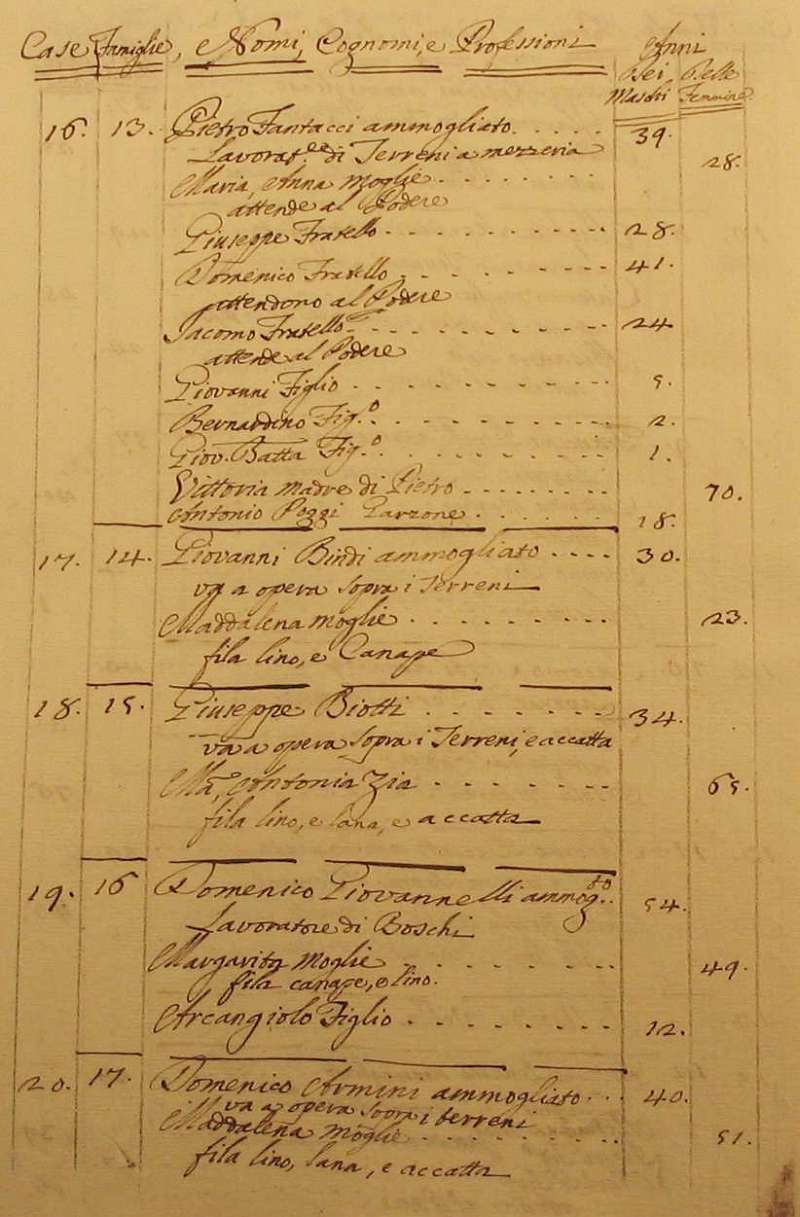 Case Famiglie, e Nomi, Cognomi, e Professioni Anni
Dei Delle
Maschi Femmine
16. 13. Pietro Fantacci ammogliato 39.
Lavorat.e di Terreni a mezzeria
Maria Anna Moglie 28.
attende al Podere
Giuseppe Fratello 28.
Domenico Fratello 41.
attendono al Podere
Iacomo Fratello 24
attende al Podere
Giovanni Figlio 5.
Bernardino Fig.o 2.
Giov. Batta Fig.o 1.
Vittoria madre di Pietro 70.
Antonio Poggi Garzone 18.
17. 14. Giovanni Bindi ammogliato 30.
va a opera sopra i Terreni
Maddalena moglie 23.
fila lino, e Canape
18. 15. Giuseppe Biotti 34.
va a opera sopra i Terreni, e accatta
Ma. Antonia Zia 65.
fila lino, e lana, e accatta
19. 16 Domenico Giovannelli ammog.to 54.
Lavoratore di Boschi
Margarita Moglie 49.
fila canape, e lino.
Arcangiolo Figlio 12.
20. 17. Domenico Armini ammogliato 40.
va a opera sopra i terreni
Maddalena moglie 51.
fila lino, lana, e accatta